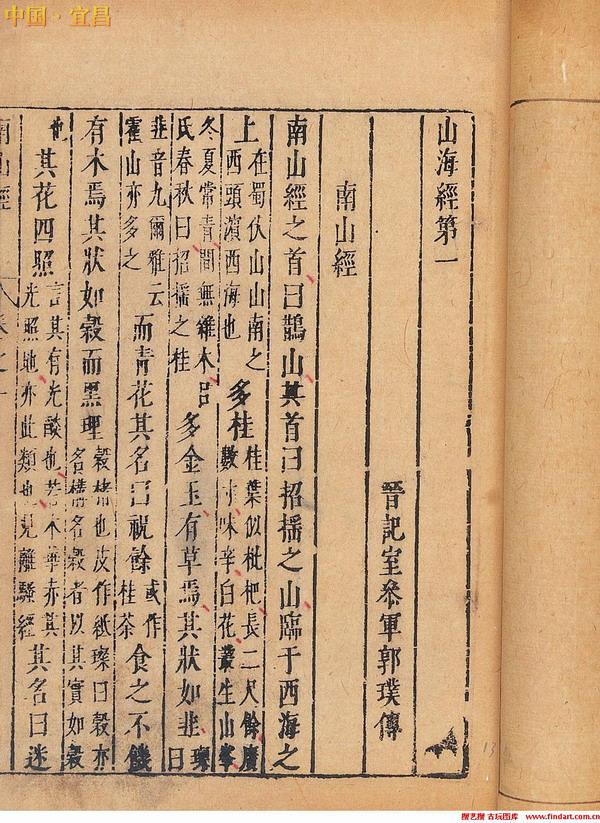 中国·宜昌
山海經第一
晉記室參軍郭璞傳
南山經
南山經之首曰鵲山其首曰招搖之山臨于西海之
上在蜀伏山山南之西頭濱西海也多桂桂葉似枇杷長二尺餘廣數寸味辛白花叢生山峯
冬夏常青間無雜木呂氏春秋曰招搖之桂多金玉有草焉其狀如韭璨曰
韭音九爾雅云霍山亦多之而青花其名曰祝餘或作桂荼食之不饑
有木焉其狀如榖而黑理榖楮也皮作紙璨曰榖亦名構名榖者以其實如榖
也其花四照言其有光燄也若木華赤其光照地亦此類也見離騷經其名曰迷
南山經
13
搜艺搜 古玩图库 www.findart.com.cn